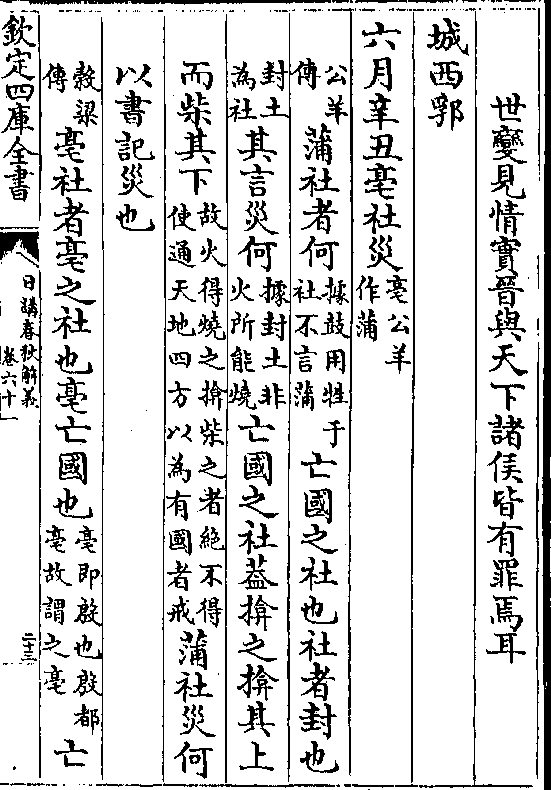 世變見情實晉與天下諸侯皆有罪焉耳
城西郛
六月辛丑亳社災亳公羊作蒲
公羊傳蒲社者何據鼓用牲于社不言蒲亡國之社也社者封也
封土為社其言災何據封土非火所能燒亡國之社蓋揜之揜其上
而柴其下故火得燒之揜柴之者絶不得使通天地四方以為有國者戒蒲社災何
以書記災也
穀梁傳亳社者亳之社也亳亡國也亳即殷也殷都亳故謂之亳亡
欽定四庫全書
日講春秋解義
卷六十
二十三